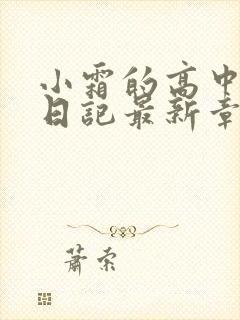 小霜的高中
日記最新章
蕭索